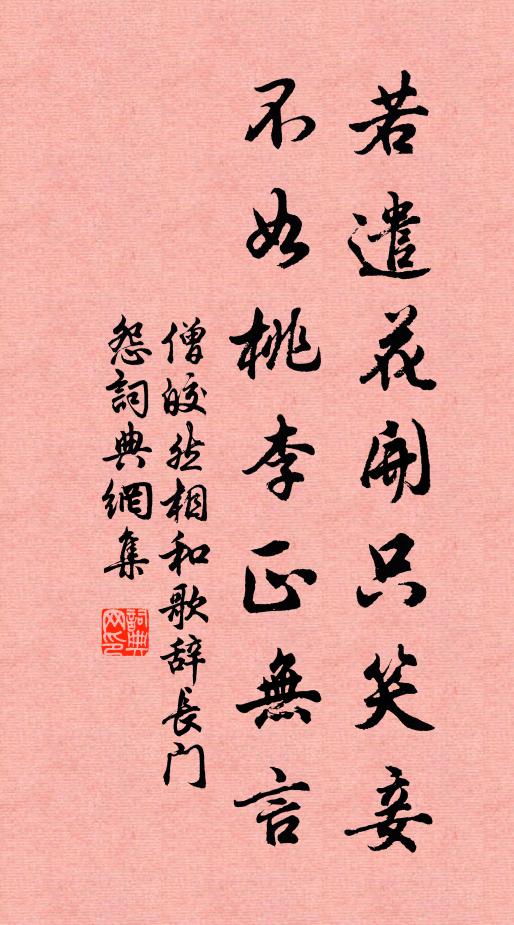 若遣花開只笑妾
不如桃李正無言
僧皎然相和歌辞長門
怨詞典網集
詞典網印